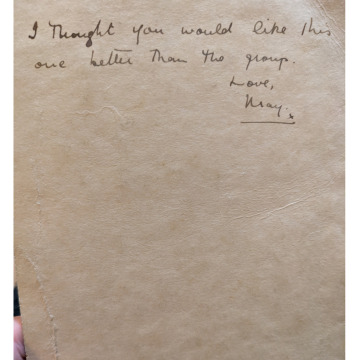 I Thought you would like this
one better Than the group.
Love,
May.
x